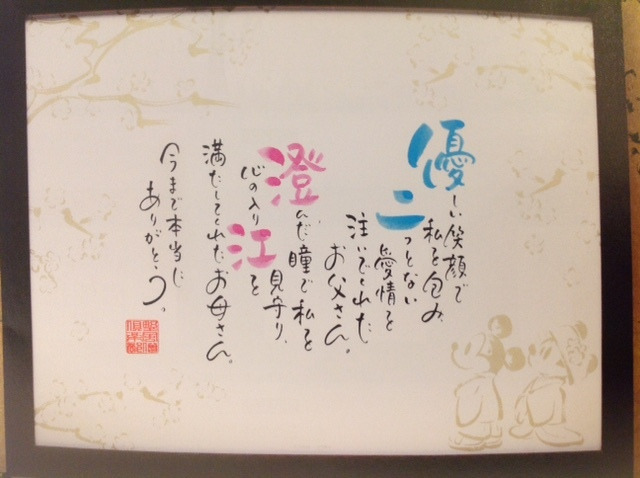 優しい笑顔で
私を包み、
二つとない
愛情を
注いでくれた
お父さん。
澄んだ瞳で私を
見守り、
心の入り江を
満たしてくれたお母さん。
今まで本当に
ありがとう。